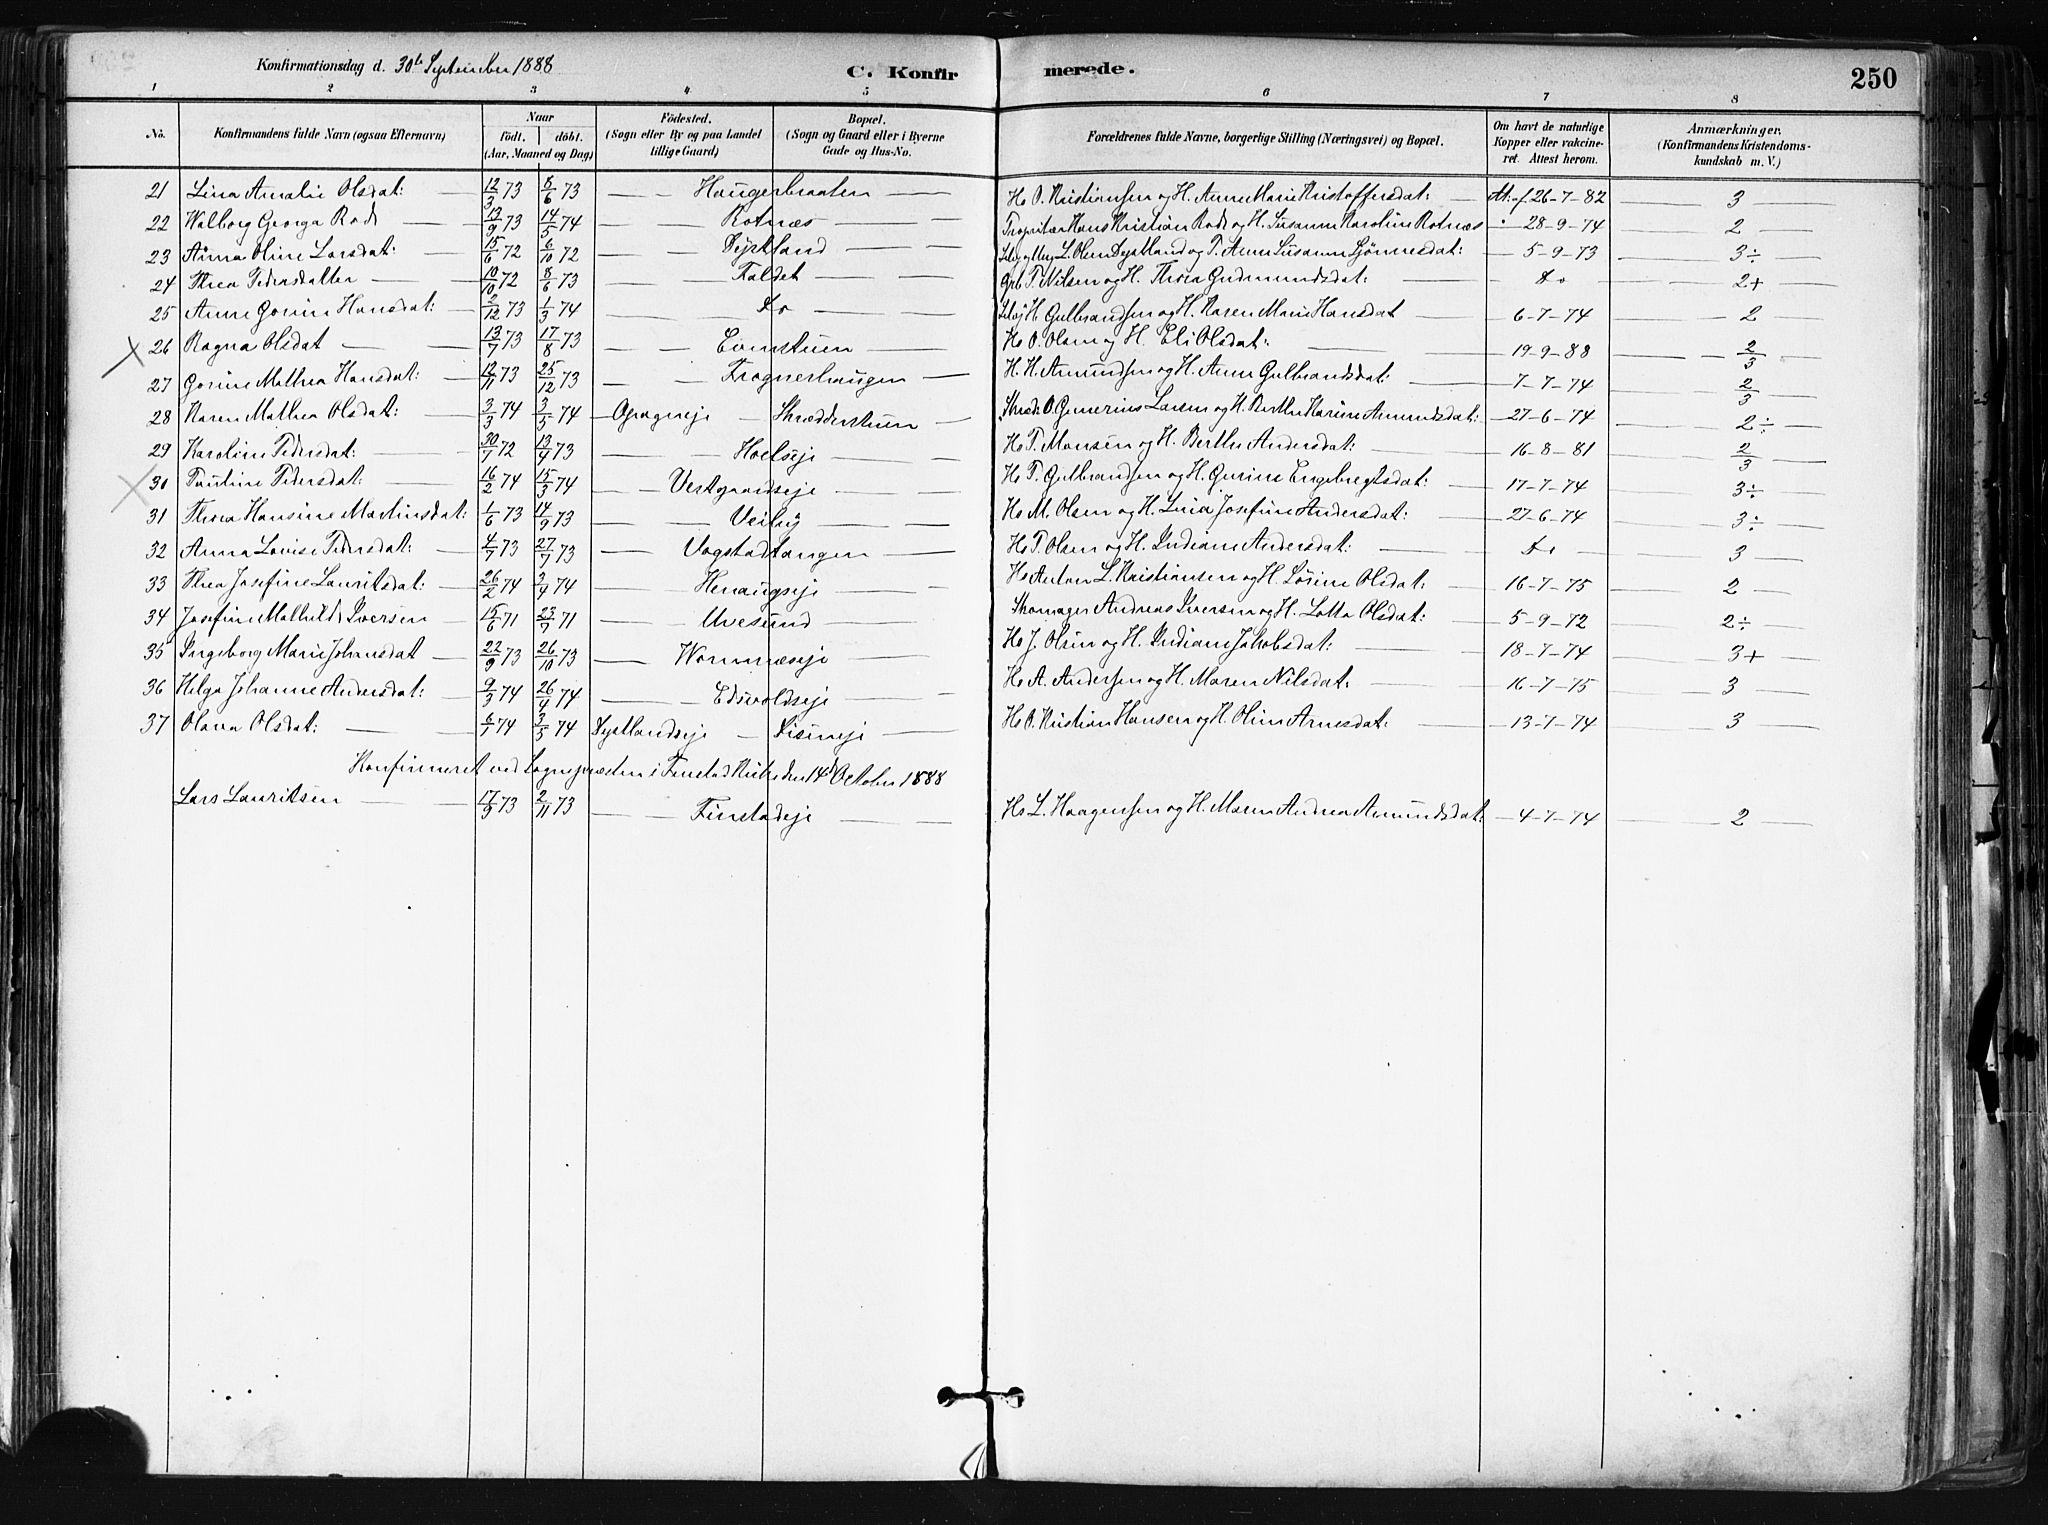 Konfirmationsdag d. 30te September 1888 C. Konfirmerede. 250
1 2 3 4 5 6 7 8
No. Konfirmandens fulde Navn (ogsaa Efternavn) Naar födt. döbt. (Aar, Maaned og Dag) Födested. (Sogn eller By og paa Landet tillige Gaard) Bopæl. (Sogn og Gaard eller i Byerne Gade og Hus-No. Forældrenes fulde Navne, borgerlige Stilling (Næringsvei) og Bopæl. Om havt de naturlige Kopper eller vakcineret. Attest herom. Anmærkninger. (Konfirmandens Kristendomskundskab m. V.)
21 Lina Amalie Olsdat: 12/3 73 8/6 73 — Haugerbraaten — H O. Kristiansen og H. Anne Marie Kristoffersdat: At: af 26-7-82 3
22 Valborg Georga Rod 13/9 73 14/5 74 — Rotnæs — Proprietær Hans Kristian Rod og H. Susanne Karoline Rotnæs 28-9-74 2
23 Anna Oline Larsdat: 15/6 72 6/10 72 — Dystland — L. Olsen Dystland og Anne Susanne 5-9-73 3÷
24 Thea Pedersdatter 10/10 72 8/6 73 — Faldet — Grb P. Nilsen og H. Thea Gudmundsdat: do 2+
25 Anne Gorine Hansdat: 2/12 73 1/3 74 — do — H. Gulbrandsen og H. Karen Marie Hansdat 6-7-74 2
26 Ragna Olsdat 13/7 73 17/8 73 — — H O. Olsen og H. Eli Olsdat: 19-9-88 2/3
27 Gorine Mathea Hansdat: 12/11 73 25/12 73 — Frognerhaugen — H. H. Amundsen og H. Anne Gulbrandsdat: 7-7-74 2/3
28 Karen Mathea Olsdat: 3/3 74 3/5 74 — Skrædderstuen — Skræd: O. Gunerius Larsen og H. Berthe Karine Amundsdat: 27-6-74 2÷
29 Karoline Pedersdat: 30/7 72 13/4 73 — Hoelseje — H P. Monsen og H. Berthe Andersdat: 16-8-81 2/3
30 Pauline Pedersdat: 16/2 74 15/3 74 — Vestgaardseje — H P. Gulbrandsen og H. Gurine Engebregtsdat: 17-7-74 3÷
31 Thea Hansine Martinsdat: 1/6 73 14/9 73 — Veiby — H M. Olsen og H. Lina Josefine Andersdat: 27-6-74 3÷
32 Anna Lovise Pedersdat: 4/7 73 27/7 73 — Vogstadtangen — H P. Olsen og H. Indiane Andersdat: do 3
33 Thea Josefine Lauritsdat: 26/2 74 3/4 74 — Henaugseje — H Anton L. Kristiansen og H. Lovine Olsdat: 16-7-75 2
34 Josefine Mathilde Iversen 15/6 71 23/7 71 — Uvesund — Skomager Andreas Iversen og H. Lotta Olsdat: 5-9-72 2÷
35 Ingeborg Marie Johansdat 22/9 73 26/10 73 — Wormnæseje — H J. Olsen og H. Indiane Jakobsdat: 18-7-74 3+
36 Helga Johanne Andersdat: 9/3 74 26/4 74 — Edsvoldseje — H A. Andersen og H. Maren Nilsdat: 16-7-75 3
37 Olava Olsdat: 6/1 74 3/5 74 Dystlandseje — H O. Kristian Hansen og H. Oline Arnesdat: 13-7-74 3
Konfirmeret ved Sognepræsten i Finstad Kirke den 14de October 1888
Lars Lauritsen 17/9 73 2/11 73 — Finstadeje — H L. Haagensen og H. Maren Andrea Amundsdat: 4-7-74 2